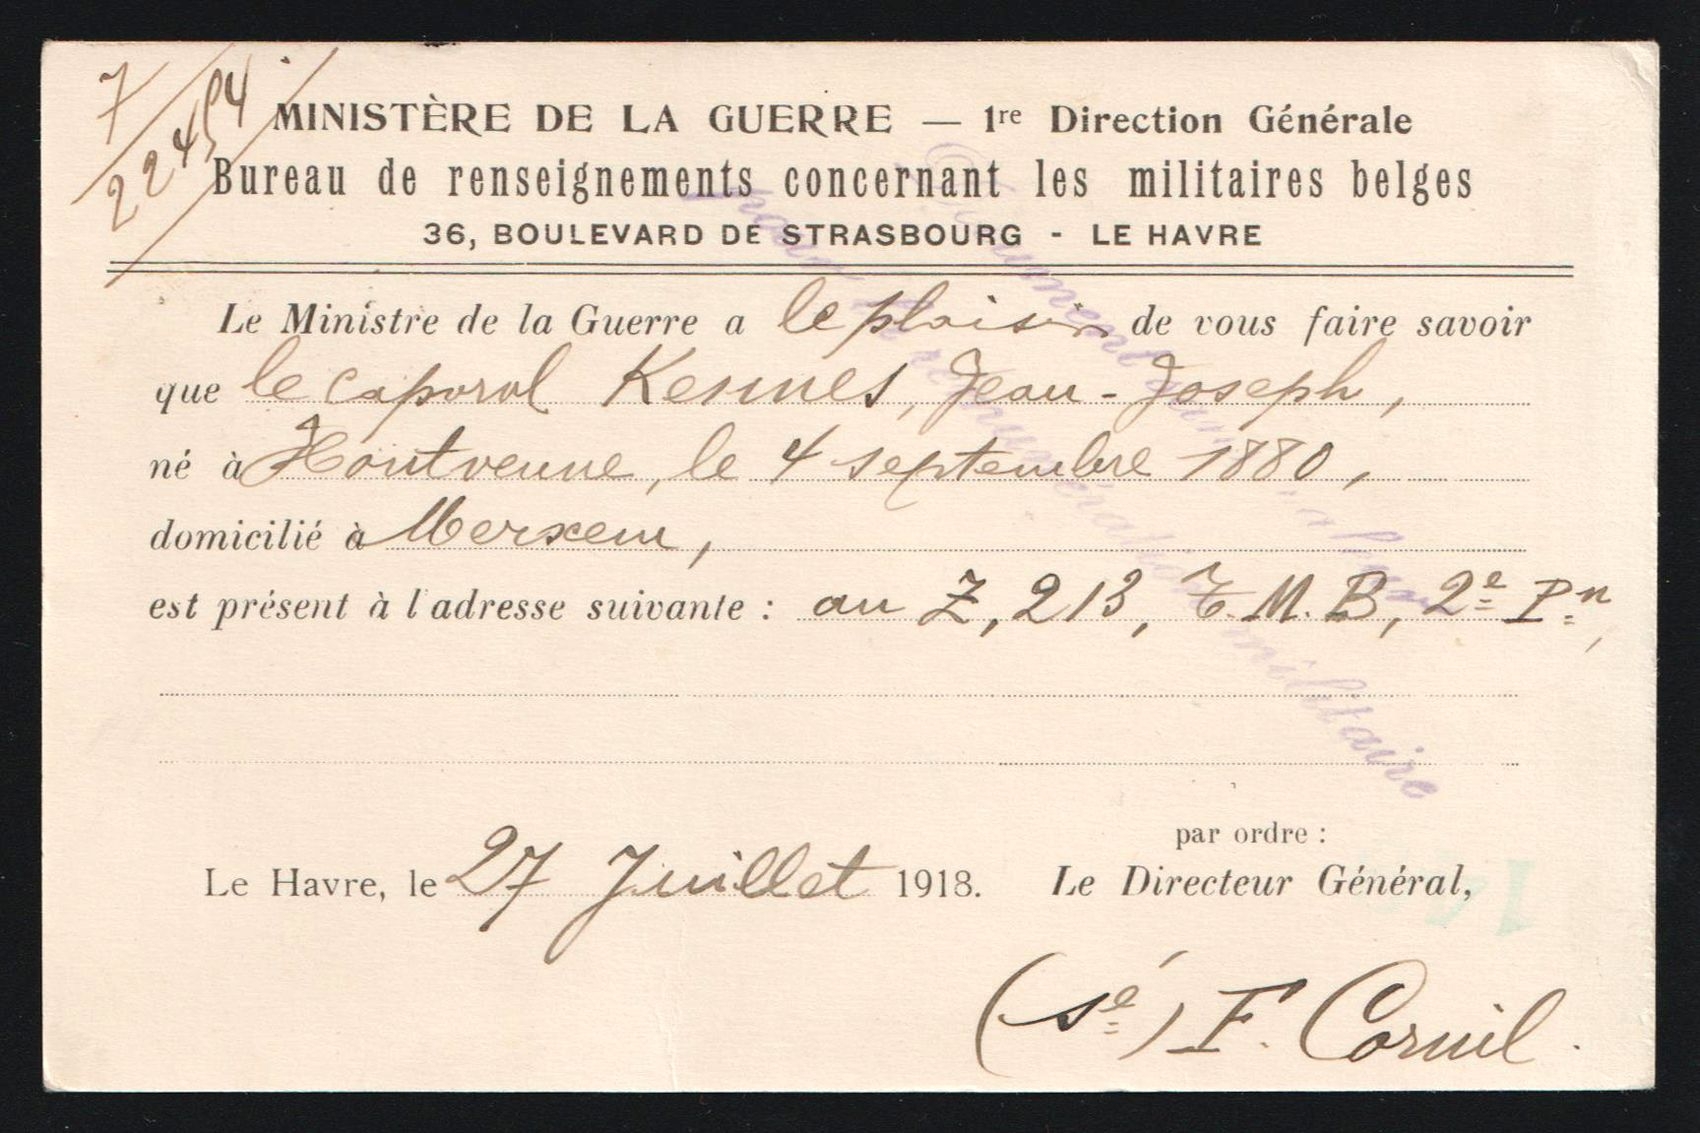 7
22454
MINISTÈRE DE LA GUERRE — 1re Direction Générale
Bureau de renseignements concernant les militaires belges
36, BOULEVARD DE STRASBOURG - LE HAVRE
Le Ministre de la Guerre a le plaisir de vous faire savoir
que le caporal Kennes, Jean-Joseph,
né à Houtvenne, le 4 septembre 1880,
domicilié à Merxem,
est présent à l'adresse suivante : au Z, 213, T. M. B, 2e Pon,
par ordre :
Le Havre, le 27 Juillet 1918. Le Directeur Général,
(sé) F. Cornil.